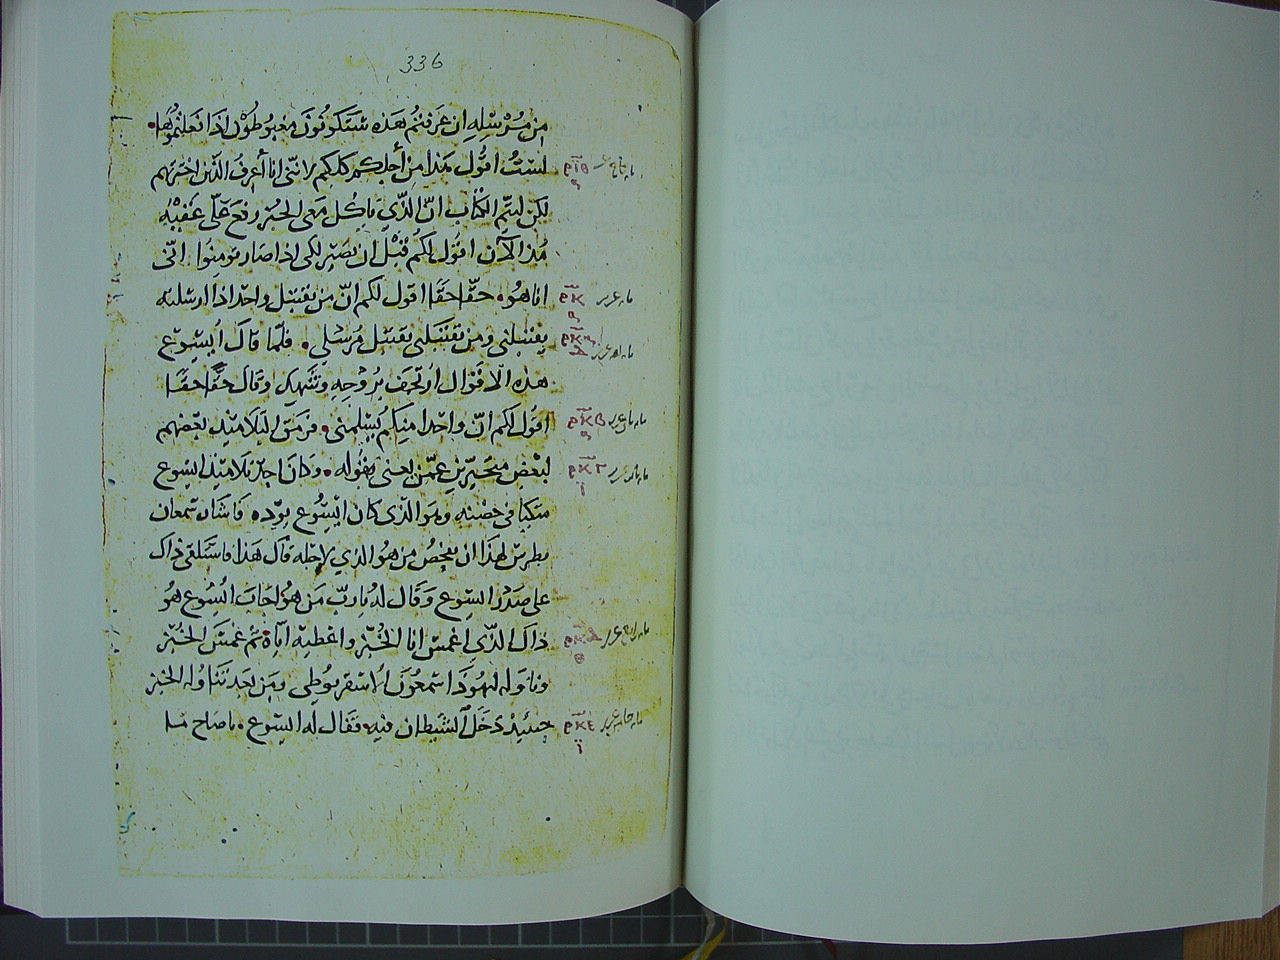 336
من مرسله ان عرفتم هذه ستكونون مغبوطون اذا فعلتموها.
لست اقول هذا من أجلكم كلكم لانني انا أعرف الذين اخترتهم
لكن ليتم الكتاب انّ الذّي ياكل معي الخبز رفع عليّ عقبيه
مذ الآن اقول لكم قبل ان يصير لكي اذا صار تومنوا انّي
انا هو. حقّا حقّا اقول لكم انّ من يقتبل واحدا اذا ارسلته
يقتبلني ومن يقتبلني يقتبل مرسلي. فلمّا قال اليسوع
هذه الاقوال ارتجف بروحه وتشهد وقال حقّا حقّا
اقول لكم انّ واحدا منكم يسلمني. فرمق التلاميذ بعضهم
لبعض متحيّرين عمّن يعني بقوله. وكان احد تلاميذ اليسوع
متكيا في حضنه وهو الذي كان اليسوع يودّه. فاشار سمعان
بطرس لهذا ان يفحص من هو الذي لاجله قال هذا فاستلقى ذاك
على صدر اليسوع وقال له يا ربّ من هو اجاب اليسوع هو
ذاك الذّي اغمس انا الخبز واعطيه ايّاه. ثم غمس الخبز
وناوله ليهوذا سمعون الاسقريوطي ومن بعد تناوله الخبز
حينئيذ دخل الشيطان فيه. فقال له اليسوع. يا صاح ما